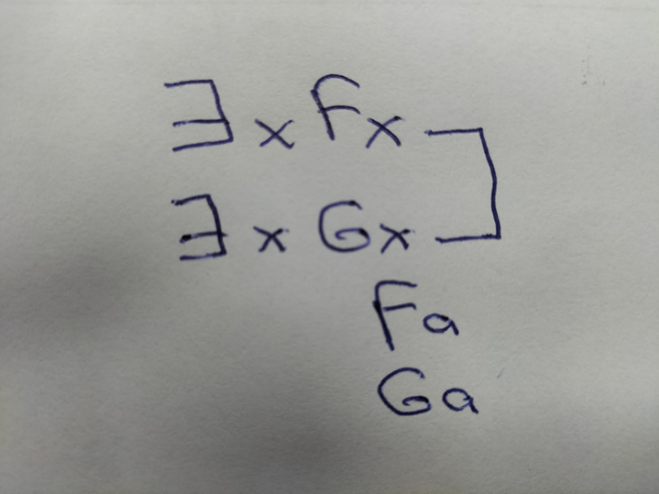 ∃x Fx
∃x Gx
Fa
Ga